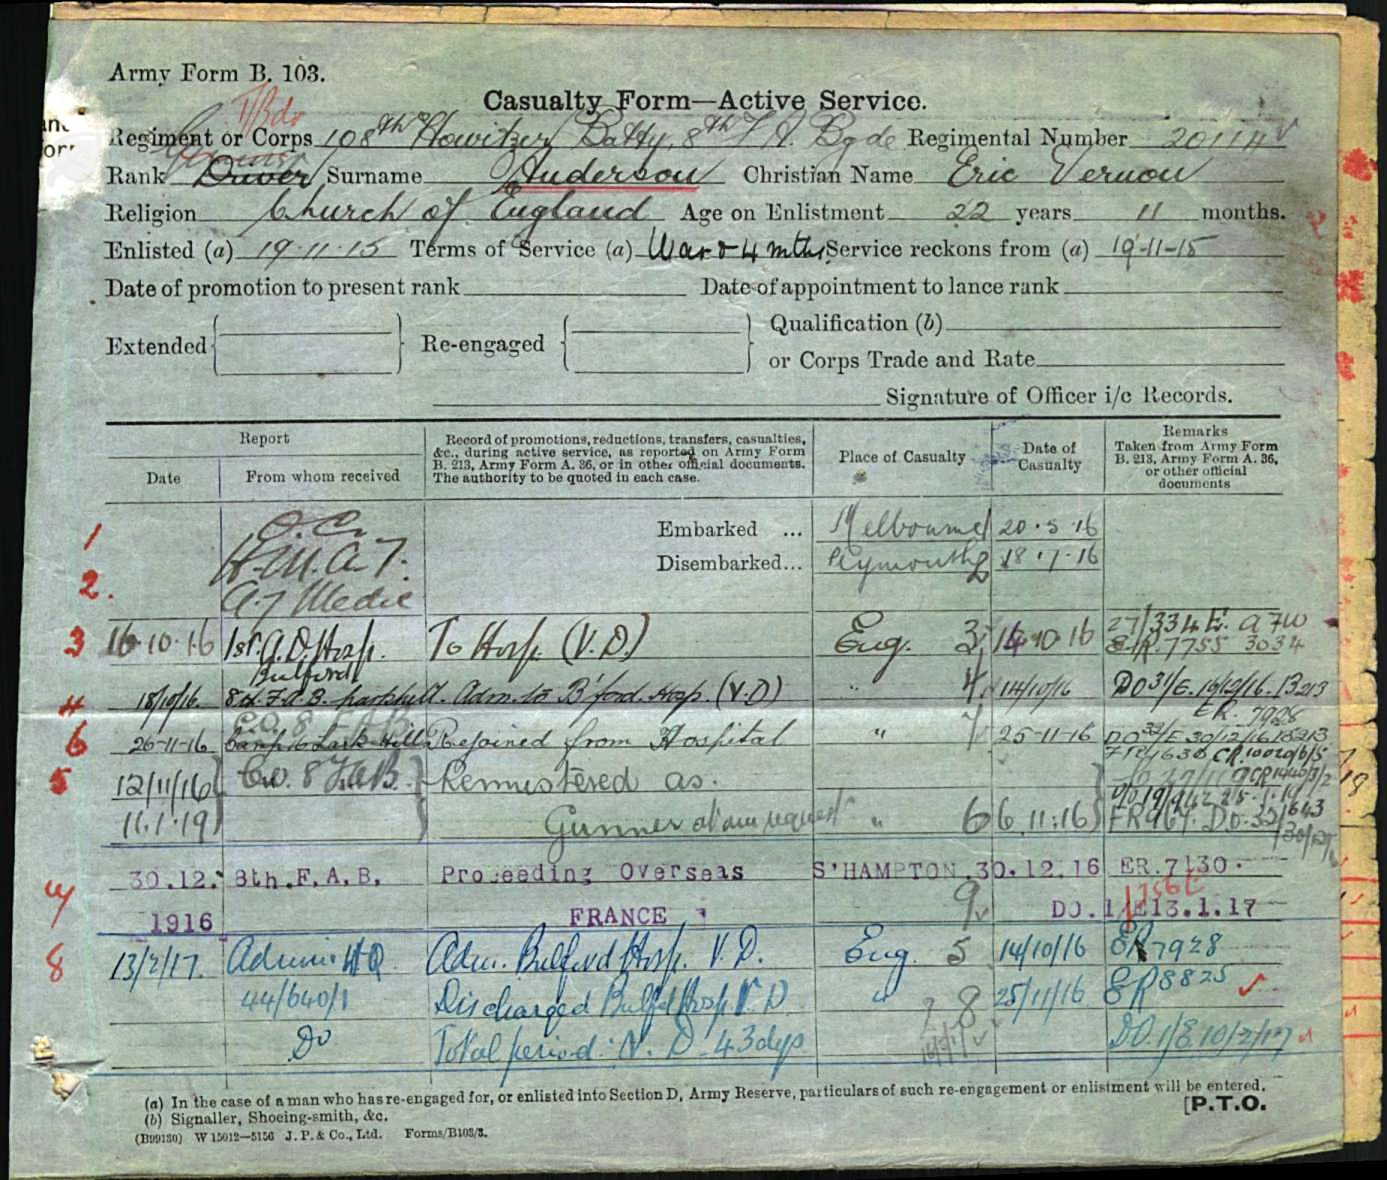 Army Form B. 103.
Casualty Form—Active Service.
T/Bdr
Regiment or Corps 108th Howitzer Batty, 8th F.A. Bgde Regimental Number 20114
Rank Driver Surname Anderson Christian Name Eric Vernon
Religion Church of England Age on Enlistment 22 years 11 months.
Enlisted (a) 19.11.15 Terms of Service (a) War & 4 mths Service reckons from (a) 19-11-15
Date of promotion to present rank Date of appointment to lance rank
Extended Re-engaged Qualification (b)
or Corps Trade and Rate
Signature of Officer i/c Records.
Report
Date From whom received
Record of promotions, reductions, transfers, casualties, &c., during active service, as reported on Army Form B. 213, Army Form A. 36, or in other official documents. The authority to be quoted in each case.
Place of Casualty
Date of Casualty
Remarks
Taken from Army Form B. 213, Army Form A. 36, or other official documents
1 O.C. Embarked ... Melbourne 20.5.16
H.M.A.T. Disembarked... Plymouth 18.7.16
2. A.7
3 16.10.16 1st A.D. Hosp. Bulford To Hosp (V.D.) Eng. 3 14.10.16 27/334 E. 7755 3034
4 18/10/16 8th F.A.B. Adm. to B'ford Hosp. (V.D) " 4 14/10/16 DO 31/E. 16/12/16. B213
ER. 7928
6 26-11-16 Rejoined from Hospital " 25-11-16 DO 32/E 30/12/16 B213
5 12/11/16 C.O. 8 F.A.B. Remustered as.
11.1.19 Gunner at own request " 6 6.11.16
30.12. 8th.F.A.B. Proceeding Overseas S'HAMPTON. 30.12.16 ER.7130.
1916 FRANCE 9 DO.1/E13.1.17
8 13/2/17. Admin HQ Adm. Bulford Hosp. V.D. Eng. 5 14/10/16 ER 7928
44/640/1 Discharged Bulfd Hosp V.D " 8 25/11/16 ER 8825
Do Total period: V.D. 43 dys DO.1/E.10/2/17
(a) In the case of a man who has re-engaged for, or enlisted into Section D, Army Reserve, particulars of such re-engagement or enlistment will be entered.
(b) Signaller, Shoeing-smith, &c.
[P.T.O.
(B99130) W 15012—5156 J. P. & Co., Ltd. Forms/B103/3.